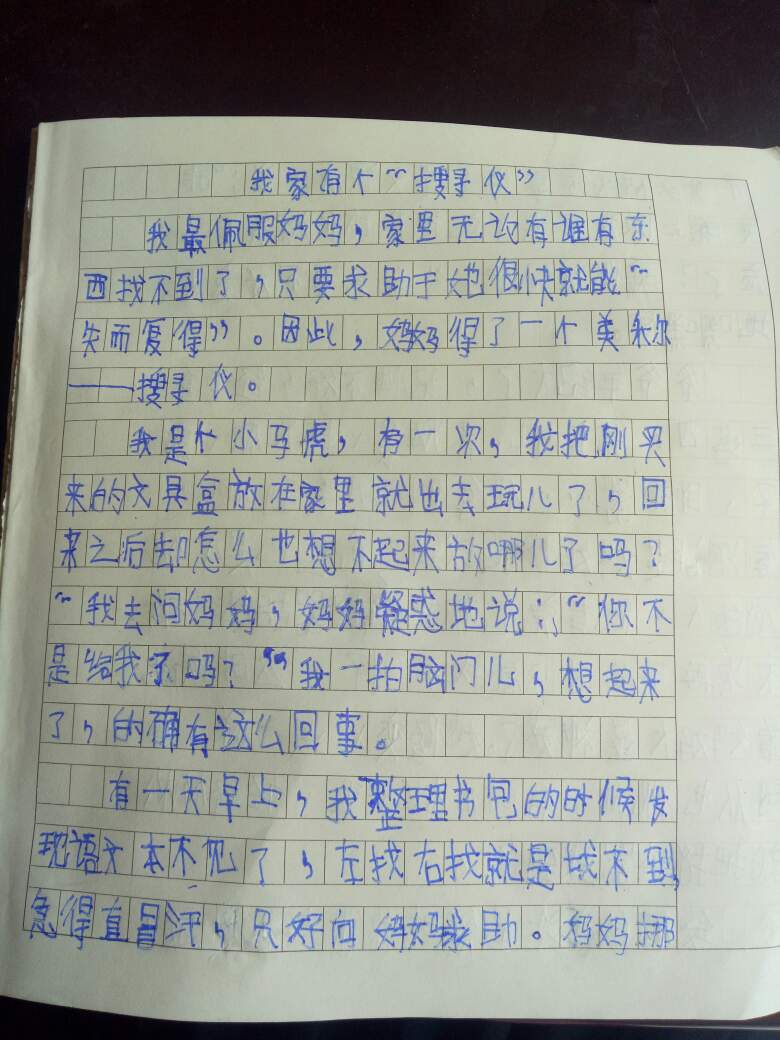 我家有个“搜寻仪”
我最佩服妈妈，家里无论有谁有东
西找不到了，只要求助于她很快就能“
失而复得”。因此，妈妈得了一个美称
——搜寻仪。
我是个小马虎，有一次，我把刚买
来的文具盒放在家里就出去玩儿了，回
来之后却怎么也想不起来放哪儿了吗？
“我去问妈妈，妈妈疑惑地说：，“你不
是给我了吗？”我一拍脑门儿，想起来
了，的确有这么回事。
有一天早上，我整理书包的时候发
现语文本不见了，左找右找就是找不到，
急得直冒汗，只好向妈妈求助。妈妈挪